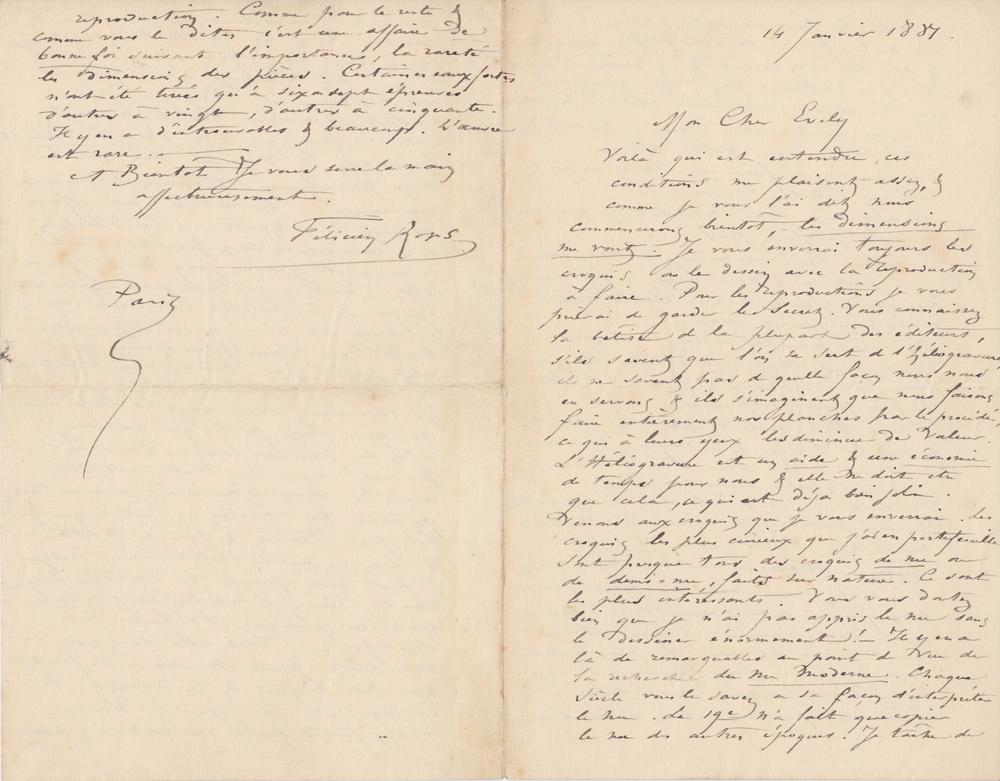 14 Janvier 1887.
Mon Cher Evely
Voilà qui est entendu, ces
conditions me plaisent assez, &
comme je vous l'ai dit nous
commencerons bientôt, - les dimensions
me vont. Je vous enverrai toujours les
croquis ou le dessin avec la reproduction
à faire. Pour les reproductions je vous
prierai de garder le secret. Vous connaissez
la bêtise de la plupart des éditeurs,
s'ils savent que l'on se sert de l'héliogravure
ils ne savent pas de quelle façon nous nous
en servons & ils s'imaginent que nous faisons
faire entièrement nos planches par le procédé,
ce qui à leurs yeux les diminue de valeur.
L'Héliogravure est un aide & une économie
de temps pour nous & elle ne doit être
que cela, ce qui est déjà bien joli.
Venons aux croquis que je vous enverrai. Les
croquis les plus curieux que j'ai en portefeuille
sont presque tous des croquis de nu ou
de demi-nu, faits sur nature. Ce sont
les plus intéressants. Vous vous doutez
bien que je n'ai pas appris le nu sans
le dessiner énormement! - Il y en a
là de remarquables au point de vue de
la recherche du nu moderne. Chaque
siècle vous le savez a sa façon d'interpréter
le nu. Le 19e n'a fait que copier
le nu des autres époques. Je tâche de
reproduction. Comme pour le reste &
comme vous le dites c'est une affaire de
bonne foi suivant l'importance, la rareté
les dimensions des pièces. Certaines eaux fortes
n'ont été tirées qu'à six à sept épreuves
d'autres à vingt, d'autres à cinquante.
Il y en a d'introuvables & beaucoup. L'œuvre
est rare.
A Bientôt Je vous serre la main
affectueusement.
Félicien Rops
Paris